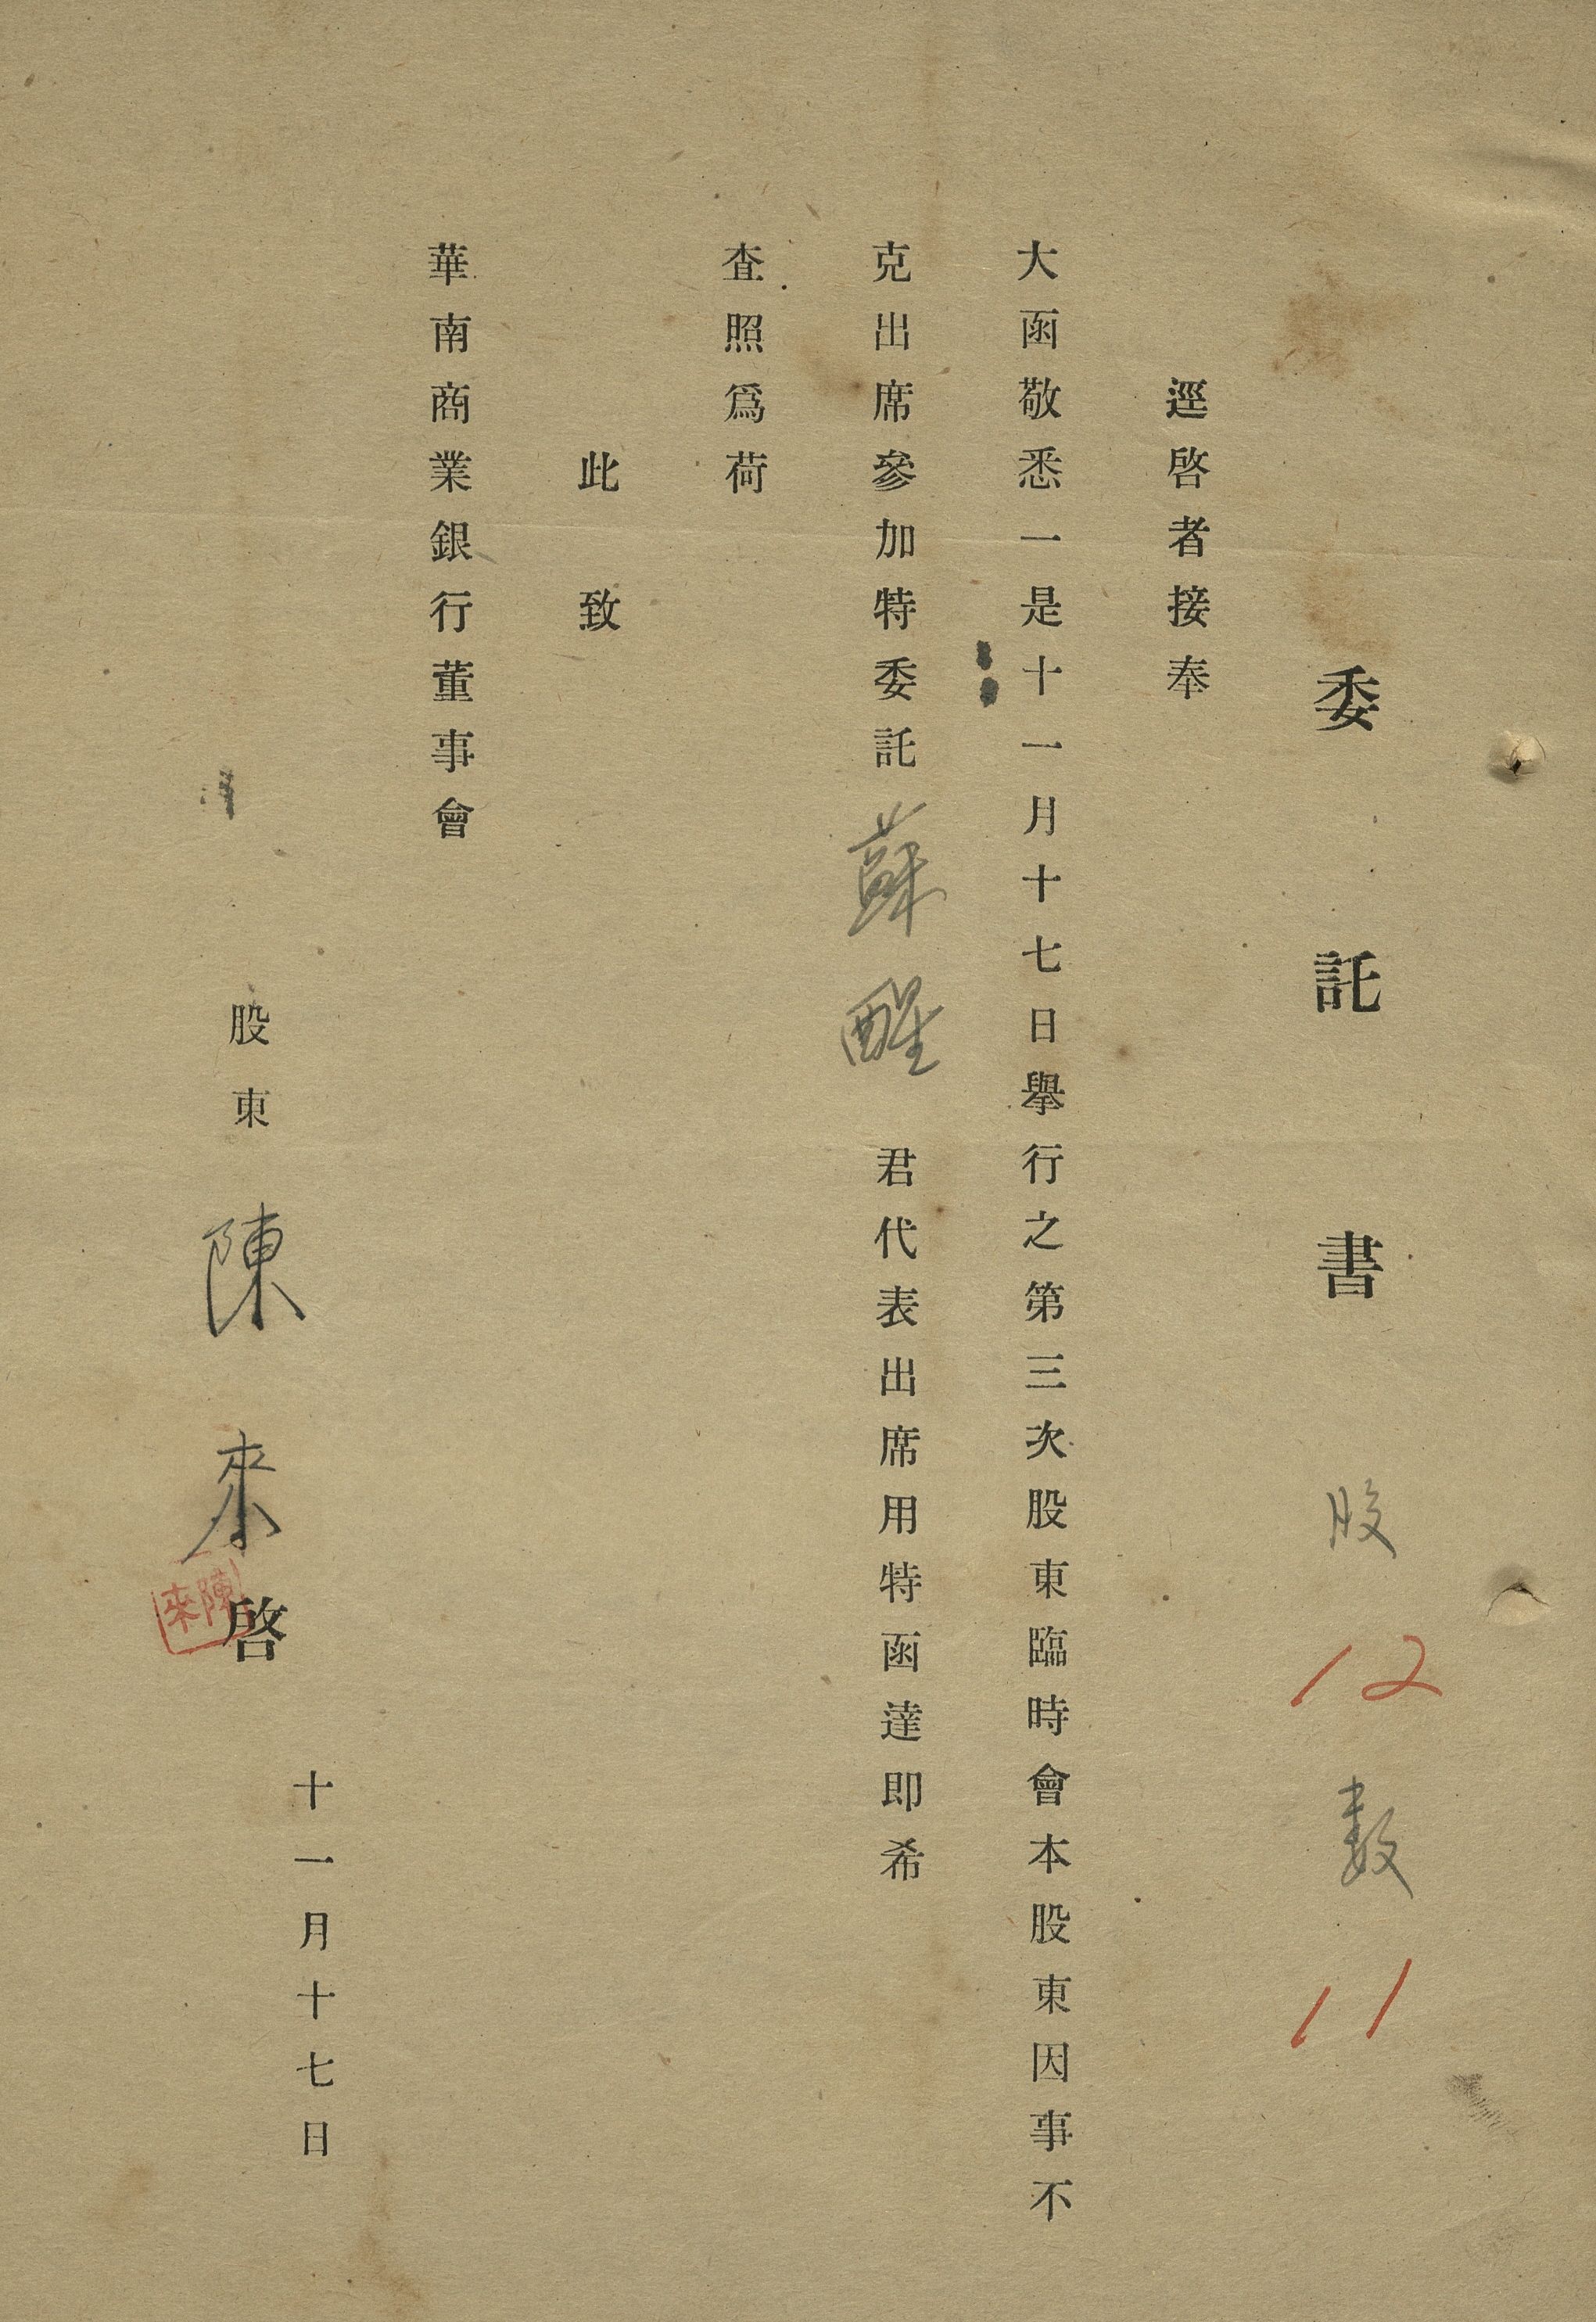 委託書 股12數11
逕啓者接奉
大函敬悉一是十一月十七日舉行之第三次股東臨時會本股東因事不
克出席參加特委託蘇醒君代表出席用特函達即希
查照爲荷
此致
華南商業銀行董事會
十一月十七日
股東陳來啓
陳來